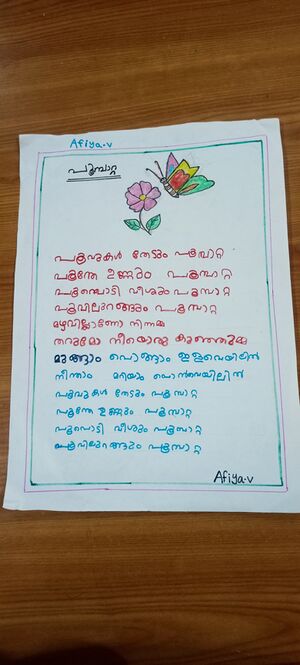 Afiya.v
പൂമ്പാറ്റ
പൂവുകൾ തേടും പൂമ്പാറ്റ
പൂന്തേ ഉണ്ണും പൂമ്പാറ്റ
പൂമ്പൊടി വീശും പൂമ്പാറ്റ
പൂവിലുറങ്ങും പൂമ്പാറ്റ
മഴവില്ലാണോ നിന്നമ്മ
തരുമോ നീയൊരു കുഞ്ഞുമ്മ
മുങ്ങാം പൊങ്ങാം ഇളവെയിലിൽ
നീന്താം മറിയാം പൊൻവെയിലിൽ
പൂവുകൾ തേടും പൂമ്പാറ്റ
പൂന്തേ ഉണ്ണും പൂമ്പാറ്റ
പൂപൊടി വീശും പൂമ്പാറ്റ
പൂവിലുറങ്ങും പൂമ്പാറ്റ
Afiya.v